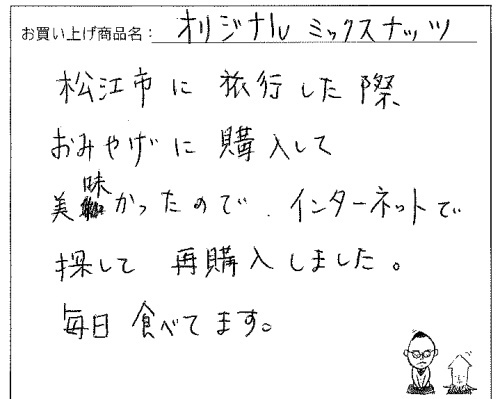 お買い上げ商品名: オリジナル ミックスナッツ
松江市に旅行した際
おみやげに購入して
美味かったので、インターネットで
探して再購入しました。
毎日食べてます。